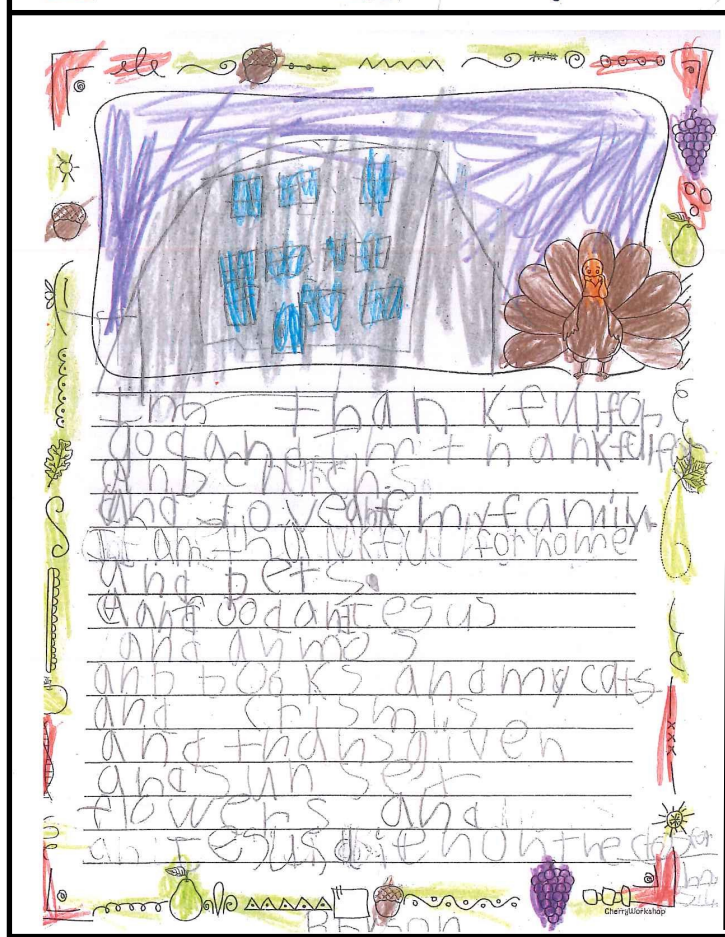 Im thankful for
god and Im thankful for
anb church
and to
my family
I am thankful for home
and pets.
And god and Jesus
and anmos
anb books and my cats
and crismis
and thansgiven
and sun set
flowers and
an Jesus on the
CherryWorkshop